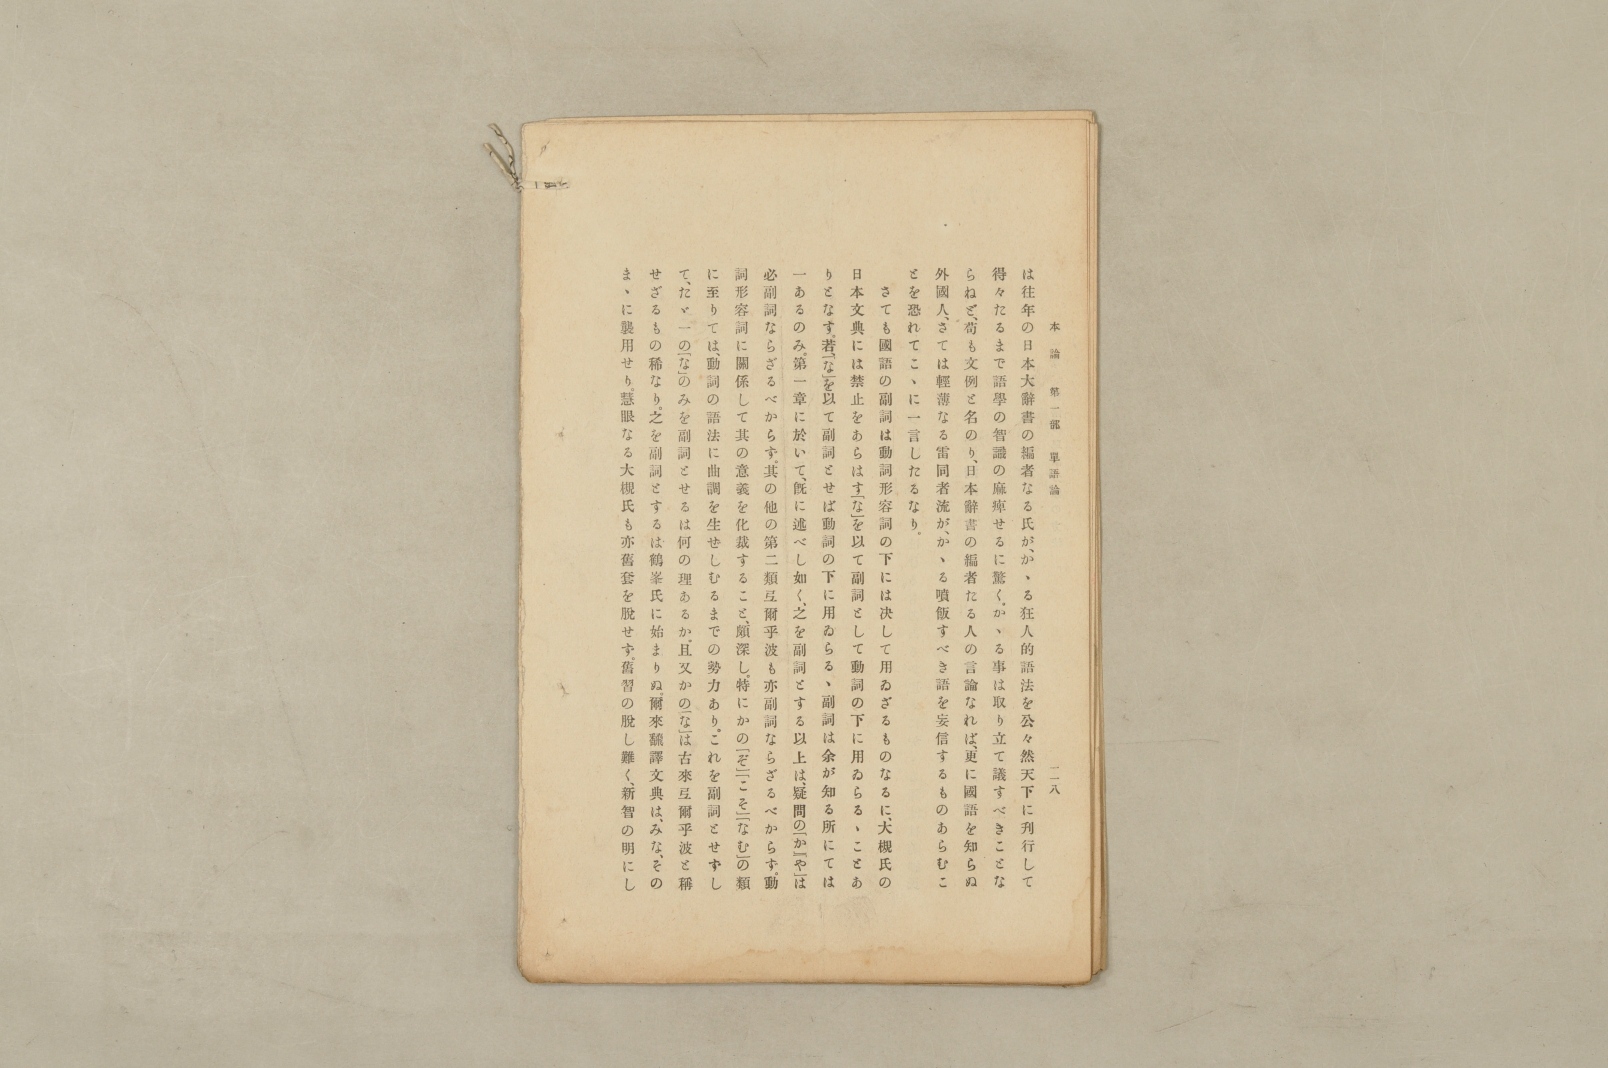 本論　第一部　單語論　一一八
は往年の日本大辭書の編者なる氏が、かゝる狂人的語法を公々然天下に刋行して
得々たるまで語學の智識の麻痺せるに驚く。かゝる事は取り立て議すべきことな
らねど、苟も文例と名のり、日本辭書の編者たる人の言論なれば、更に國語を知らぬ
外國人、さては輕薄なる雷同者流が、かゝる噴飯すべき語を妄信するものあらむこ
とを恐れてこゝに一言したるなり。
さても國語の副詞は動詞形容詞の下には决して用ゐざるものなるに、大槻氏の
日本文典には禁止をあらはす「な」を以て副詞として動詞の下に用ゐらるゝことあ
りとなす。若「な」を以て副詞とせば動詞の下に用ゐらるゝ副詞は余が知る所にては
一あるのみ。第一章に於いて、旣に述べし如く、之を副詞とする以上は、疑問の「か」「や」は
必副詞ならざるべからず。其の他の第二類弖爾乎波も亦副詞ならざるべからず。動
詞形容詞に關係して其の意義を化裁すること、頗深し。特にかの「ぞ」「こそ」「なむ」の類
に至りては、動詞の語法に曲調を生せしむるまでの勢力あり。これを副詞とせずし
て、たゞ一の「な」のみを副詞とせるは何の理あるか。且又かの「な」は古來弖爾乎波と稱
せざるもの稀なり。之を副詞とするは鶴峯氏に始まりぬ。爾來飜譯文典は、みな、その
まゝに襲用せり。慧眼なる大槻氏も亦舊套を脫せず。舊習の脫し難く、新智の明にし